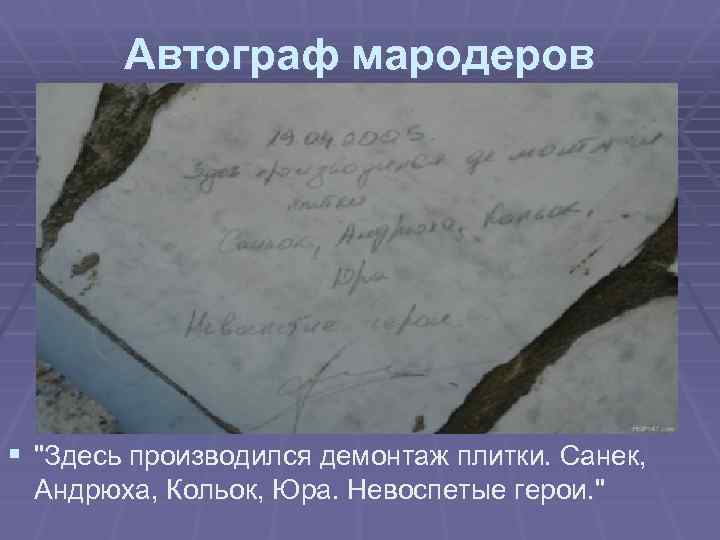 Автограф мародеров
19.04.2005.
Здесь производился демонтаж
плитки
Саньок, Андрюха, Кольок,
Юра
Невоспетые герои.
"Здесь производился демонтаж плитки. Санек,
Андрюха, Кольок, Юра. Невоспетые герои."